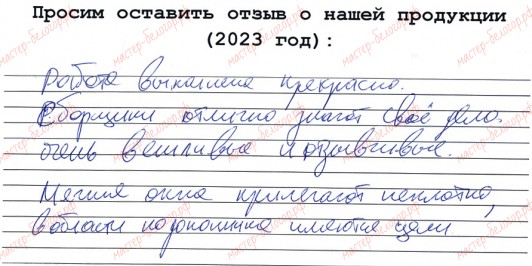 Просим оставить отзыв о нашей продукции
(2023 год):
Работа выполнена прекрасно.
Сборщики отлично знают своё дело.
очень вежливые и отзывчивые.
окна прилегают неплотно,
в области подоконника имеются щели
мастер-белогор.рф